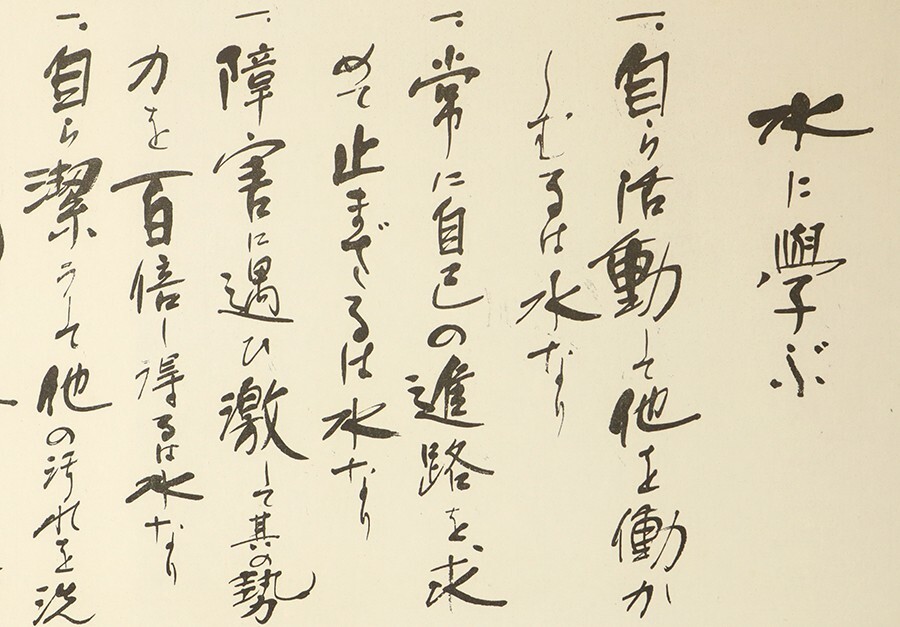 水に學ぶ
一、自ら活動して他を働か
しむるは水なり
一、常に自己の進路を求
めて止まざるは水なり
一、障害に遇ひ激して其の勢
力を百倍し得るは水なり
一、自ら潔うして他の汚れを洗